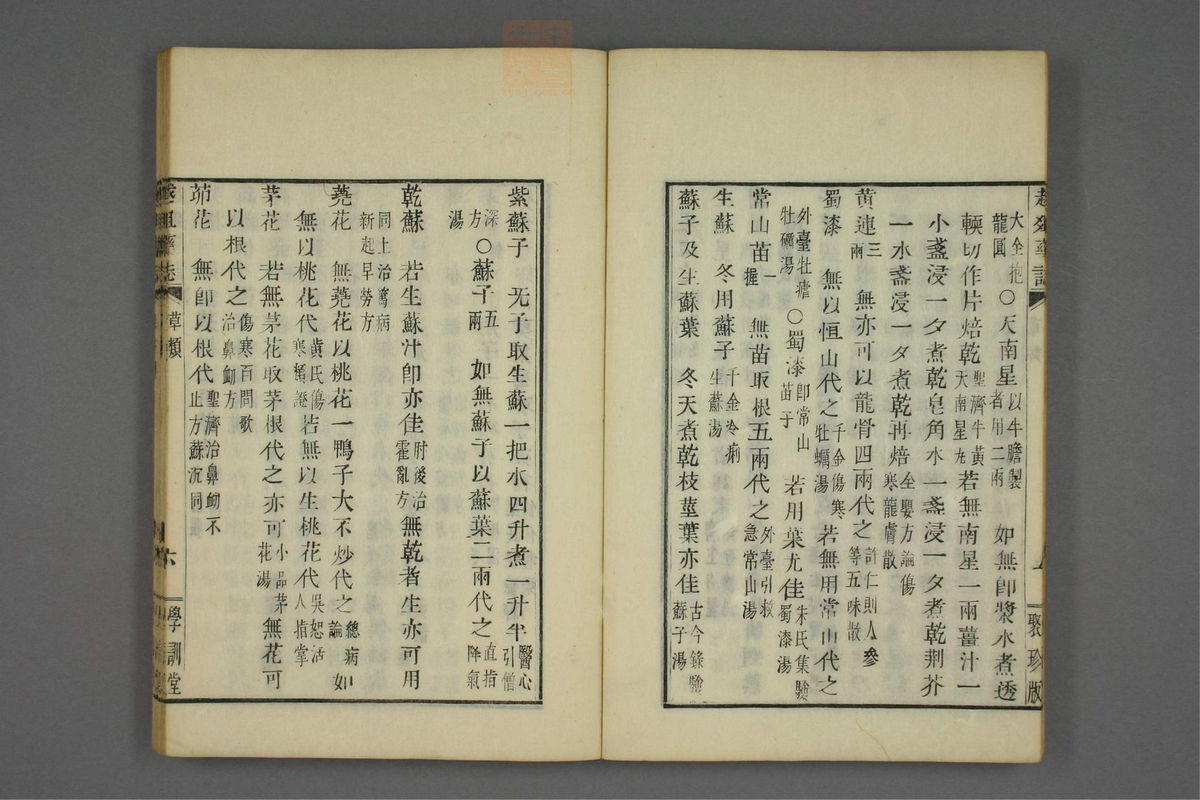 大全抱龍圓○天南星以牛膽製者用二兩 如無即漿水煮透
輭切作片焙乾聖濟牛黃天南星丸若無南星一兩薑汁一
小盞浸一夕煮乾皂角水一盞浸一夕煮乾荆芥
一水盞浸一夕煮乾再焙全嬰方論傷寒龍膚散
黃連三兩 無亦可以龍骨四兩代之許仁則人參等五味散
蜀漆 無以恒山代之千金傷寒牡蠣湯若無用常山代之
外臺牡瘧牡礪湯○蜀漆即常山苗子 若用葉尤佳朱氏集驗蜀漆湯
常山苗一握 無苗取根五兩代之外臺引救急常山湯
生蘇 冬用蘇子千金冷痢生蘇湯
蘇子及生蘇葉 冬天煮乾枝莖葉亦佳古今錄驗蘇子湯
聚珍版
紫蘇子 无子取生蘇一把水四升煮一升半醫心引僧
深方○蘇子五兩 如無蘇子以蘇葉二兩代之直指降氣
湯
乾蘇 若生蘇汁即亦佳肘後治霍亂方無乾者生亦可用
同上治篤病新起早勞方
蕘花 無蕘花以桃花一鴨子大不炒代之總病論如
無以桃花代黃氏傷寒類證若無以生桃花代吳恕活人指掌
茅花 若無茅花取茅根代之亦可小品茅花湯無花可
以根代之傷寒百問歌治鼻衂方
茆花 無即以根代聖濟治鼻衂不止方蘇沉同
草類
六
學訓堂